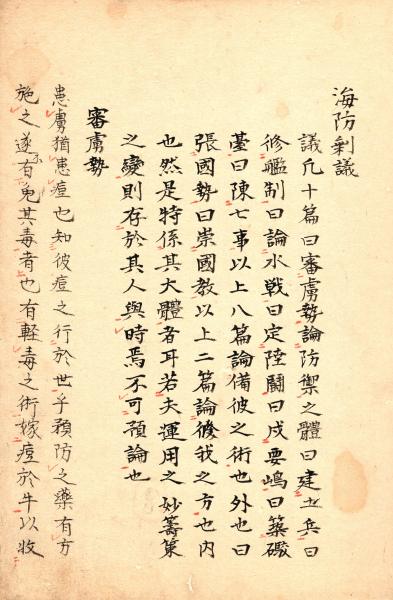 海防剿議
議凡十篇曰審虜勢論防禦之體曰建士兵曰
修艦制曰論水戰曰定陸鬪曰戍要嶋曰築礮
臺曰陳七事以上八篇論備彼之術也外也曰
張國勢曰崇國教以上二篇論修我之方也内
也然是特係其大體者耳若夫運用之妙籌策
之變則存於其人與時焉不可預論也
審虜勢
患虜猶患痘也知彼痘之行於世乎預防之藥有方
施之遂有不免其毒者也有軽毒之術嫁痘於牛以收